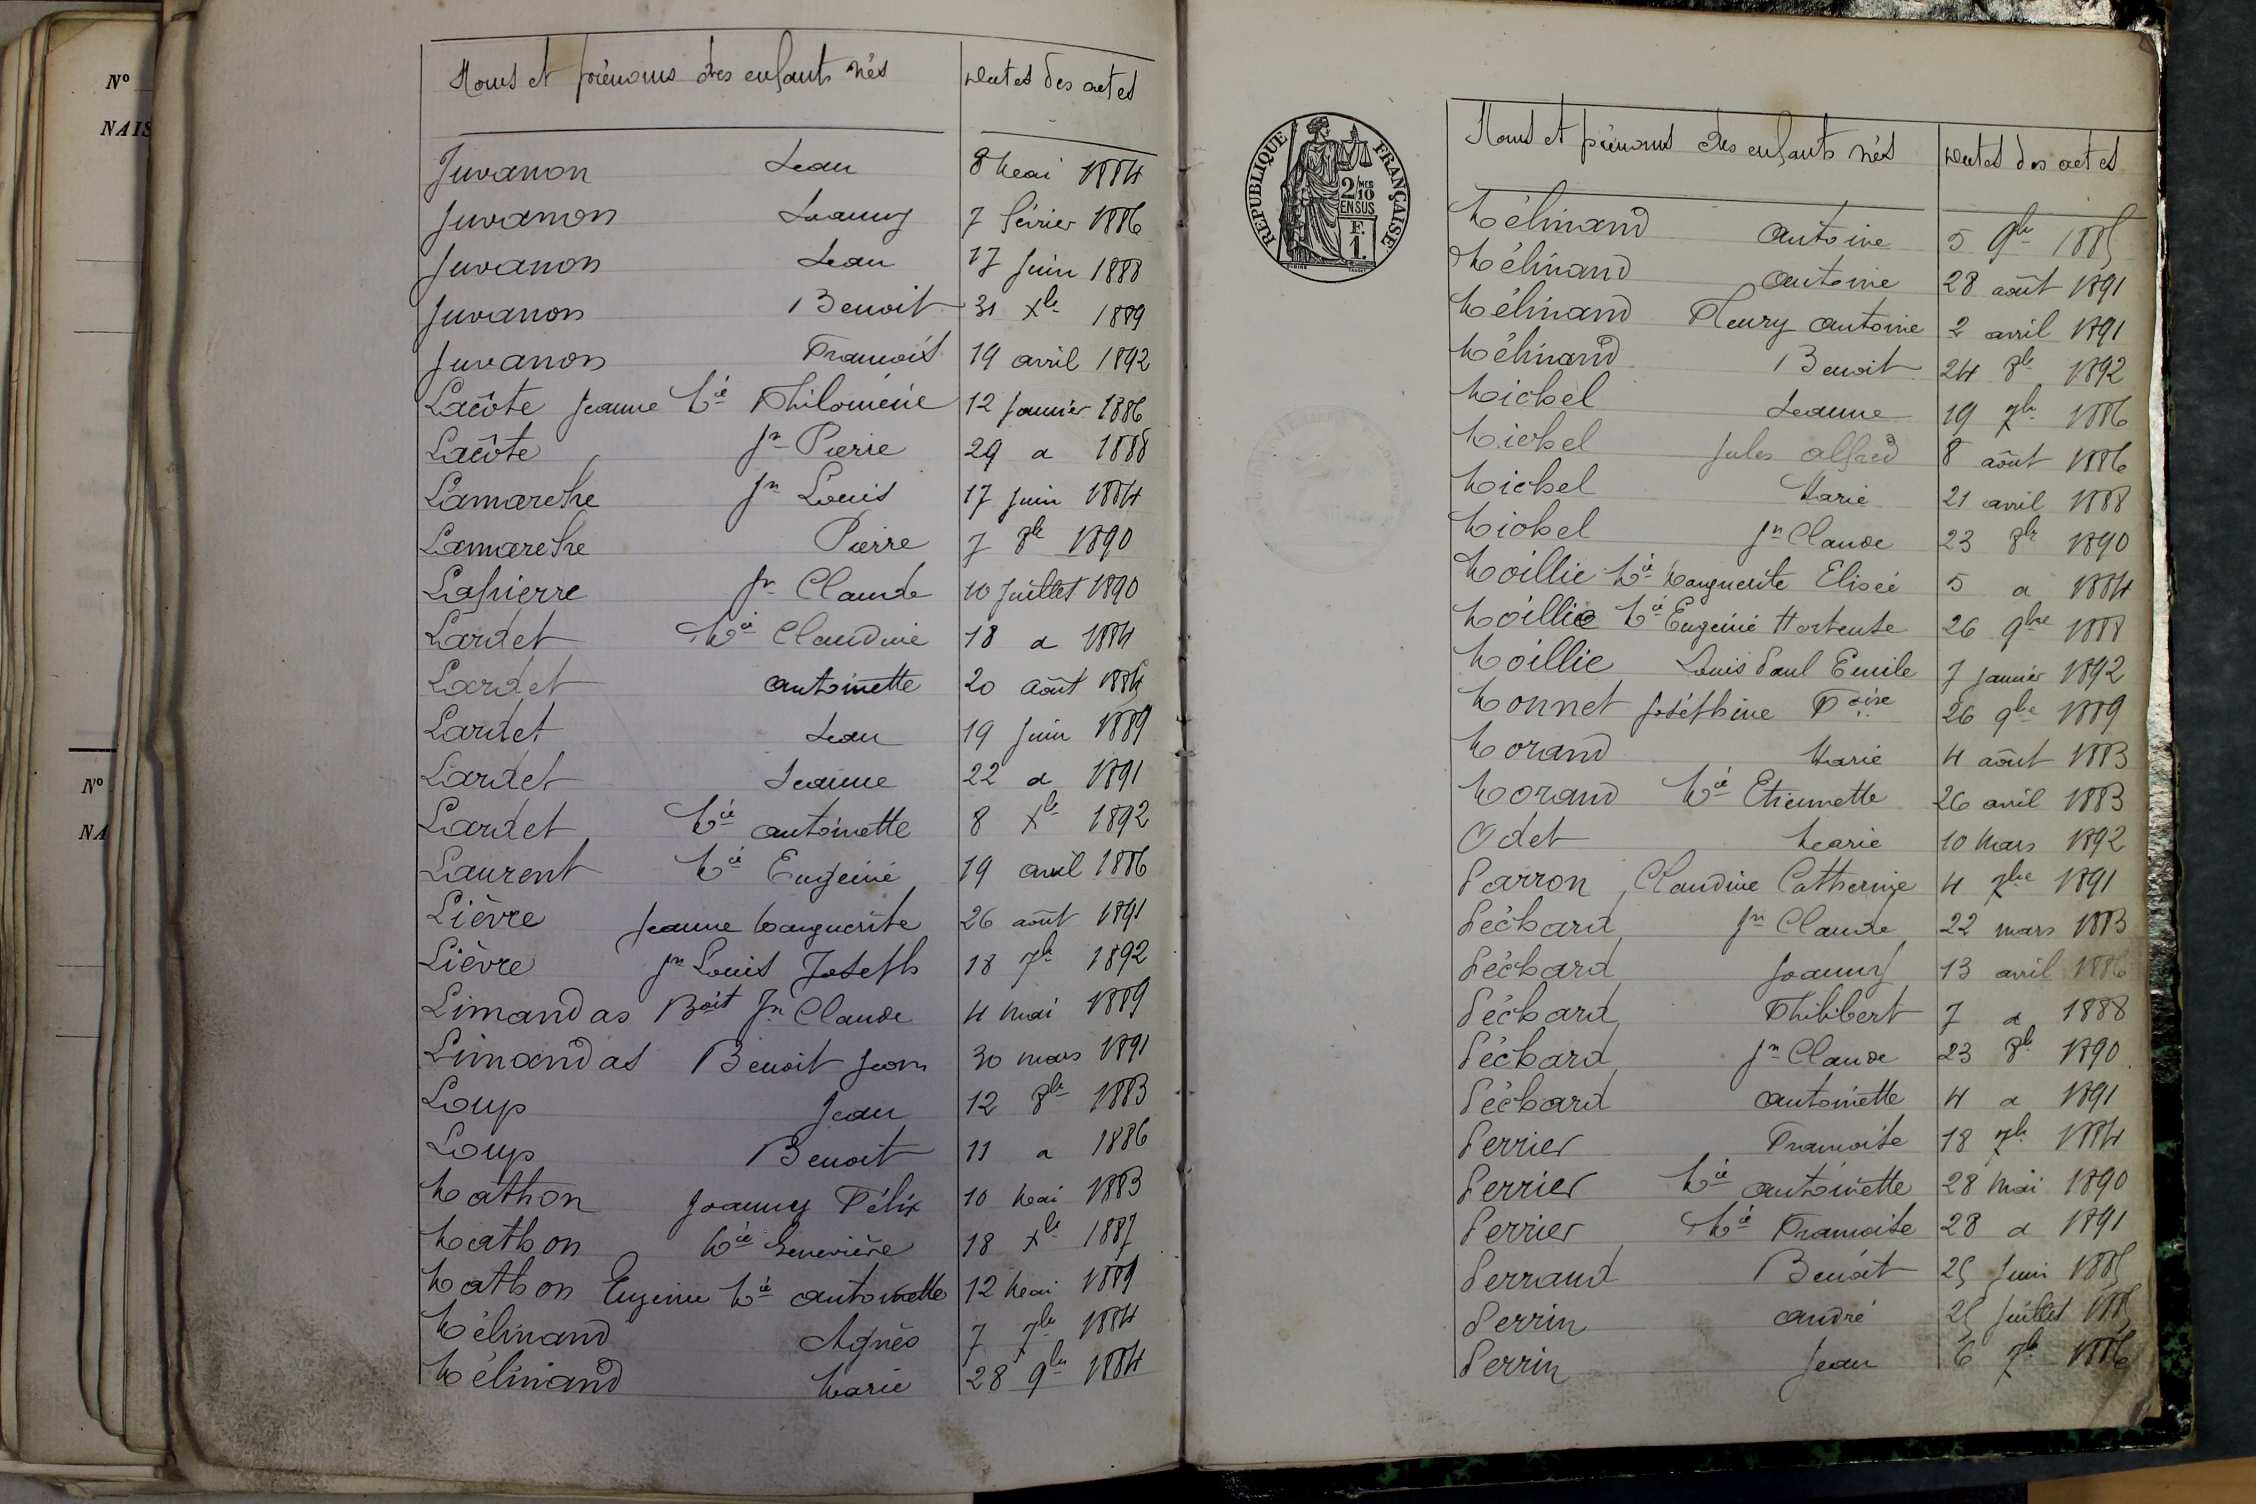 Nº
NAIS
Nº
NA
Noms et prénoms des enfants nés Dates des actes
Juvanon Jean 8 Mai 1884
Juvanon Joanny 7 février 1886
Juvanon Jean 17 Juin 1888
Juvanon Benoit 31 Xbre 1889
Juvanon François 19 avril 1892
Lacôte Jeanne Mie Philomène 12 Janvier 1886
Lacôte Jn Pierre 29 d 1888
Lamarche Jn Louis 17 Juin 1884
Lamarche Pierre 7 8bre 1890
Lapierre Jn Claude 10 Juillet 1890
Lardet Mie Claudine 18 d 1884
Lardet Antoinette 20 Août 1886
Lardet Jean 19 Juin 1889
Lardet Jeanne 22 d 1891
Lardet Mie Antoinette 8 Xbre 1892
Laurent Mie Eugénie 19 avril 1886
Lièvre Jeanne Marguerite 26 août 1891
Lièvre Jn Louis Joseph 18 7bre 1892
Limandas Boit Jn Claude 4 Mai 1889
Limandas Benoit Jean 30 mars 1891
Loup Jean 12 8bre 1883
Loup Benoit 11 d 1886
Mathon Joanny Félix 10 Mai 1883
Mathon Mie Geneviève 18 Xbre 1887
Mathon Eugénie Mie Antoinette 12 Mai 1889
Mélinand Agnès 7 7bre 1884
Mélinand Marie 28 9bre 1884
REPUBLIQUE FRANÇAISE
2/10 MES
EN SUS
F.
1.
Noms et prénoms des enfants nés Dates des actes
Mélinand Antoine 5 9bre 1885
Mélinand Antoine 28 août 1891
Mélinand Fleury Antoine 2 avril 1891
Mélinand Benoit 24 8bre 1892
Michel Jeanne 19 7bre 1886
Michel Jules Alfred 8 août 1886
Michel Marie 21 avril 1888
Michel Jn Claude 23 8bre 1890
Moillie Mie Marguerite Elisée 5 d 1884
Moillie Mie Eugénie Hortense 26 9bre 1888
Moillie Louis Paul Emile 7 Janvier 1892
Monnet Joséphine Foise 26 9bre 1889
Morand Marie 4 août 1883
Morand Mie Etiennette 26 avril 1883
Odet Marie 10 Mars 1892
Parron Claudine Catherine 4 7bre 1891
Péchard Jn Claude 22 mars 1883
Péchard Joanny 13 avril 1886
Péchard Philibert 7 d 1888
Péchard Jn Claude 23 8bre 1890
Péchard Antoinette 4 d 1891
Perrier Françoise 18 7bre 1884
Perrier Mie Antoinette 28 Mai 1890
Perrier Mie Françoise 28 d 1891
Perraud Benoit 25 Juin 1885
Perrin André 25 Juillet 1885
Perrin Jean 6 7bre 1886